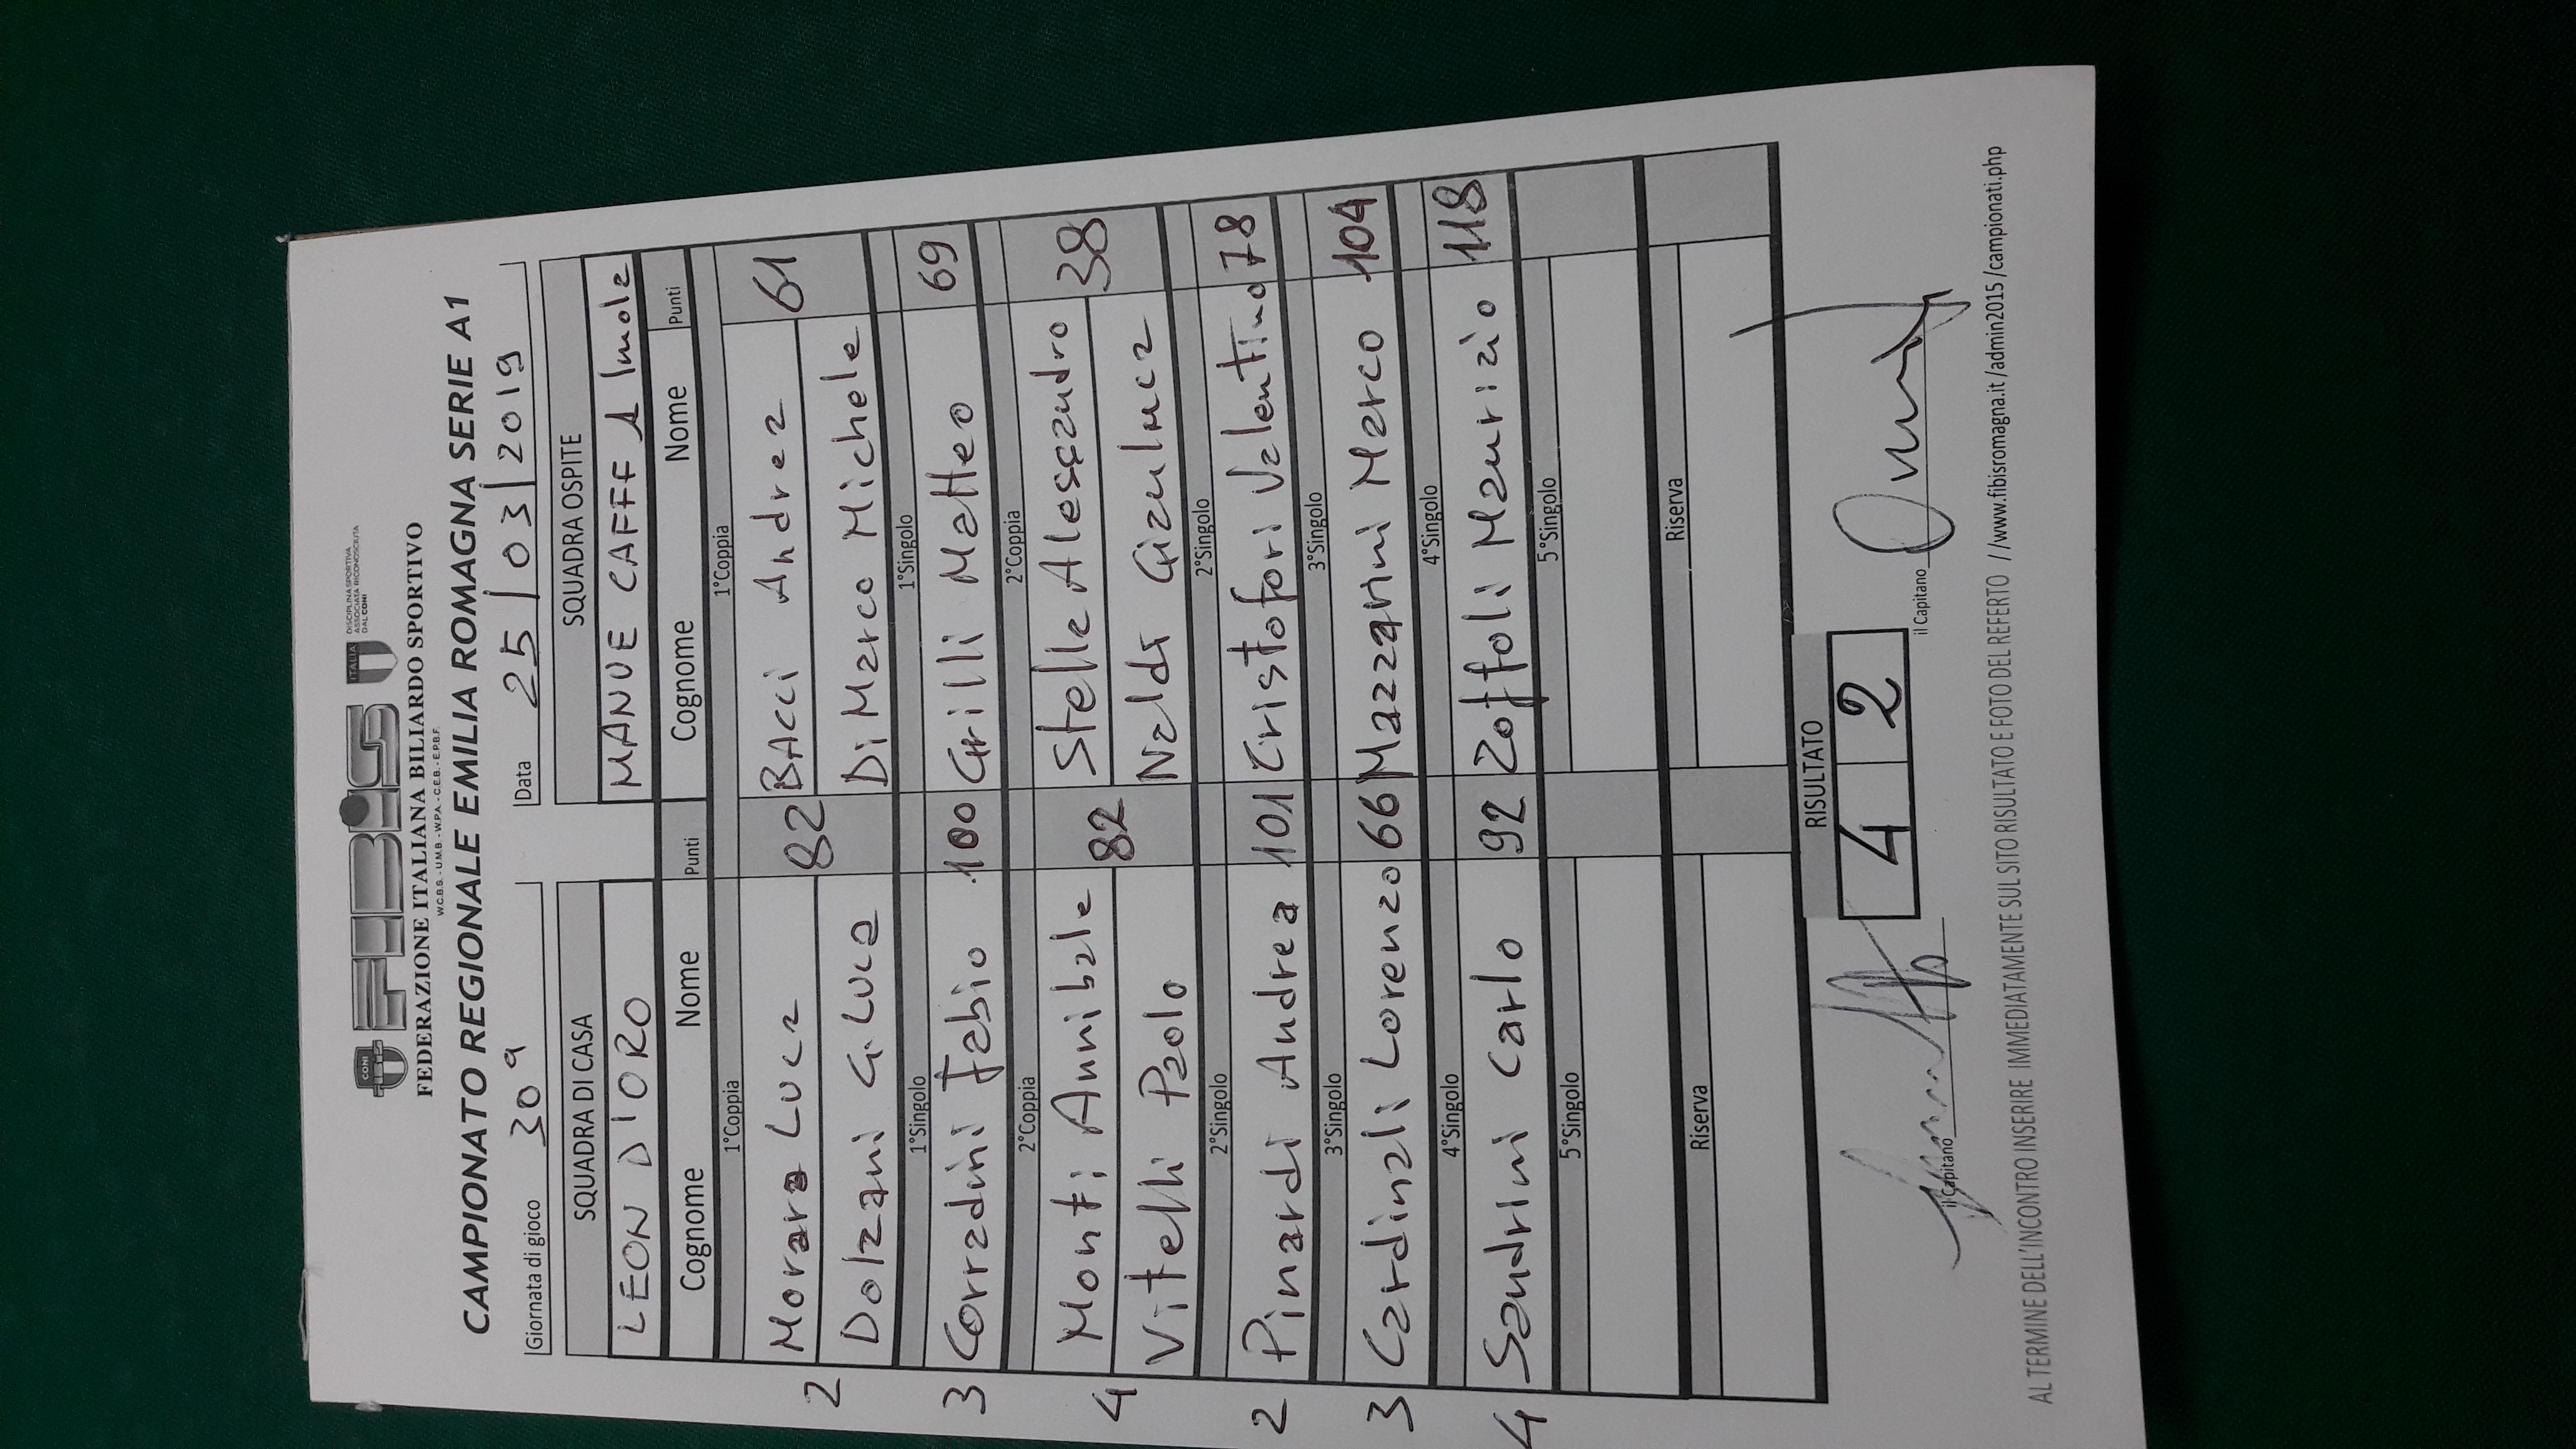 CONI
FIBiS
ITALIA
DISCIPLINA SPORTIVA
ASSOCIATA RICONOSCIUTA
DAL CONI
FEDERAZIONE ITALIANA BILIARDO SPORTIVO
W.C.B.S. - U.M.B. - W.P.A. - C.E.B. - E.P.B.F.
CAMPIONATO REGIONALE EMILIA ROMAGNA SERIE A1
Giornata di gioco 30ª Data 25/03/2019
SQUADRA DI CASA SQUADRA OSPITE
LEON D'ORO MANUE CAFFE 1 Imola
Cognome Nome Punti Cognome Nome Punti
1°Coppia 1°Coppia
2 Morara Luca 82 BAcci Andrea 61
Dolzani G. Luca Di Marco Michele
1°Singolo 1°Singolo
3 Corradini Fabio 100 Grilli Matteo 69
2°Coppia 2°Coppia
4 Monti Annibale 82 Stelle Alessandro 38
Vitelli Paolo Naldi Gianluca
2°Singolo 2°Singolo
2 Pinardi Andrea 101 Cristofori Valentino 78
3°Singolo 3°Singolo
3 Cardinali Lorenzo 66 Mazzarini Marco 104
4°Singolo 4°Singolo
4 Sandrini Carlo 92 Zoffoli Maurizio 118
5°Singolo 5°Singolo
Riserva Riserva
RISULTATO
4 2
il Capitano il Capitano
AL TERMINE DELL'INCONTRO INSERIRE IMMEDIATAMENTE SUL SITO RISULTATO E FOTO DEL REFERTO //www.fibisromagna.it/admin2015/campionati.php